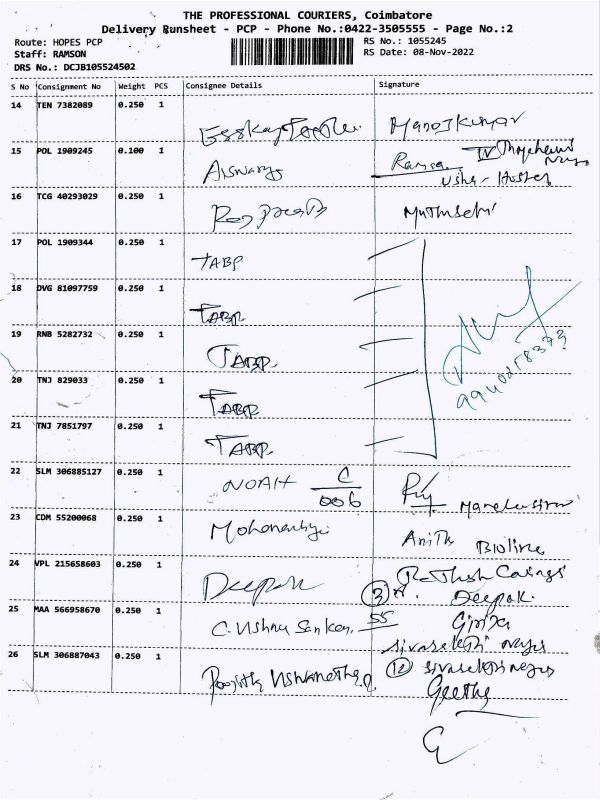 THE PROFESSIONAL COURIERS, Coimbatore
Delivery Runsheet - PCP - Phone No.:0422-3505555 - Page No.:2
Route: HOPES PCP
RS No.: 1055245
Staff: RAMSON
RS Date: 08-Nov-2022
DRS No.: DCJB105524502
S No Consignment No Weight PCS Consignee Details Signature
14 TEN 7382089 0.250 1 Manojkumar
15 POL 1909245 0.100 1
16 TCG 40293029 0.250 1
17 POL 1909344 0.250 1 TABP
18 DVG 81097759 0.250 1 TABP
19 RNB 5282732 0.250 1 TABP
20 TNJ 829033 0.250 1 TABP
21 TNJ 7851797 0.250 1 TABP
22 SLM 306885127 0.250 1 NOAH C/006
23 CDM 55200068 0.250 1 Anith Bioline
24 VPL 215658603 0.250 1 Deepak
3 Deepak.
25 MAA 566958670 0.250 1 C. Vishnu Sankar, 55 Girija
26 SLM 306887043 0.250 1 12
Geetha